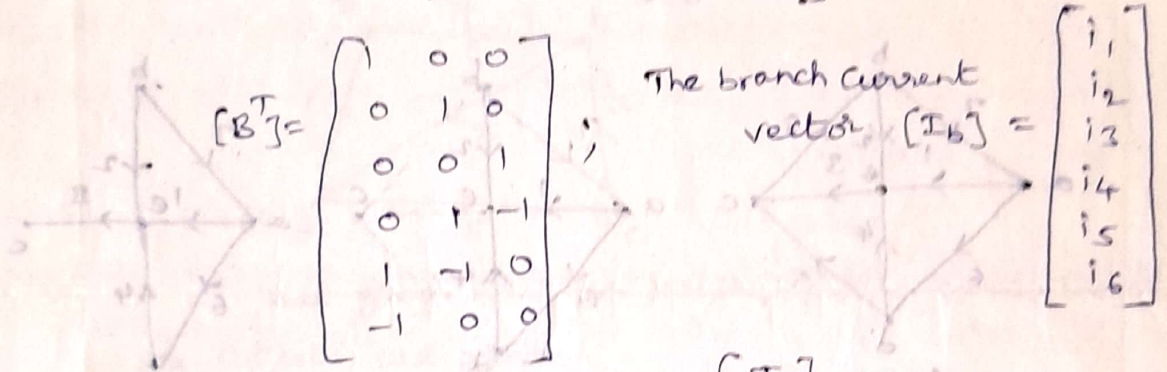 [Bᵀ]= [ 1 0 0
0 1 0
0 0 1
0 1 -1
1 -1 0
-1 0 0 ] ;
The branch current
vector [Ib] = [ i1
i2
i3
i4
i5
i6 ]